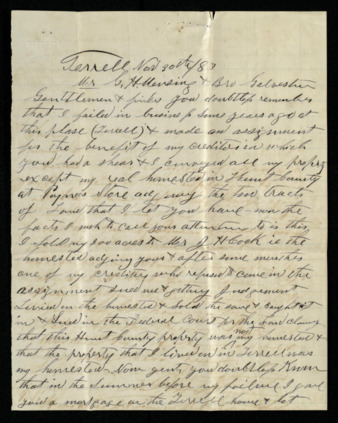 Terrell Nov 30th /83
Mr G. H. Mensing & Bro Galveston
Gentlemen & friends you doubtless remember
that I failed in business some years ago at
this place (Terrell) & made an assignment
for the benefit of my creditors in which
you had a share & I conveyed all my property
except my real homestead in Hunt County
at Store adjoining the two tracts
of land that I let you have now the
facts I wish to call your attention to is this,
I sold 200 acres to Mr J. H. Cook is the
homestead adjoing yours & after some months
one of my creditors who refused to come in the
assignment sued me & getting Judgement
Levied on the homestead & sold the same & bought it
in & sued in the Federal Court for the land claiming
that this Hunt County property was not my homestead &
that the property that I lived on in Terrell was
my homestead. Now gents you doubtless know
that in the summer before my failure I gave
you a mortgage on the Terrell home & lot